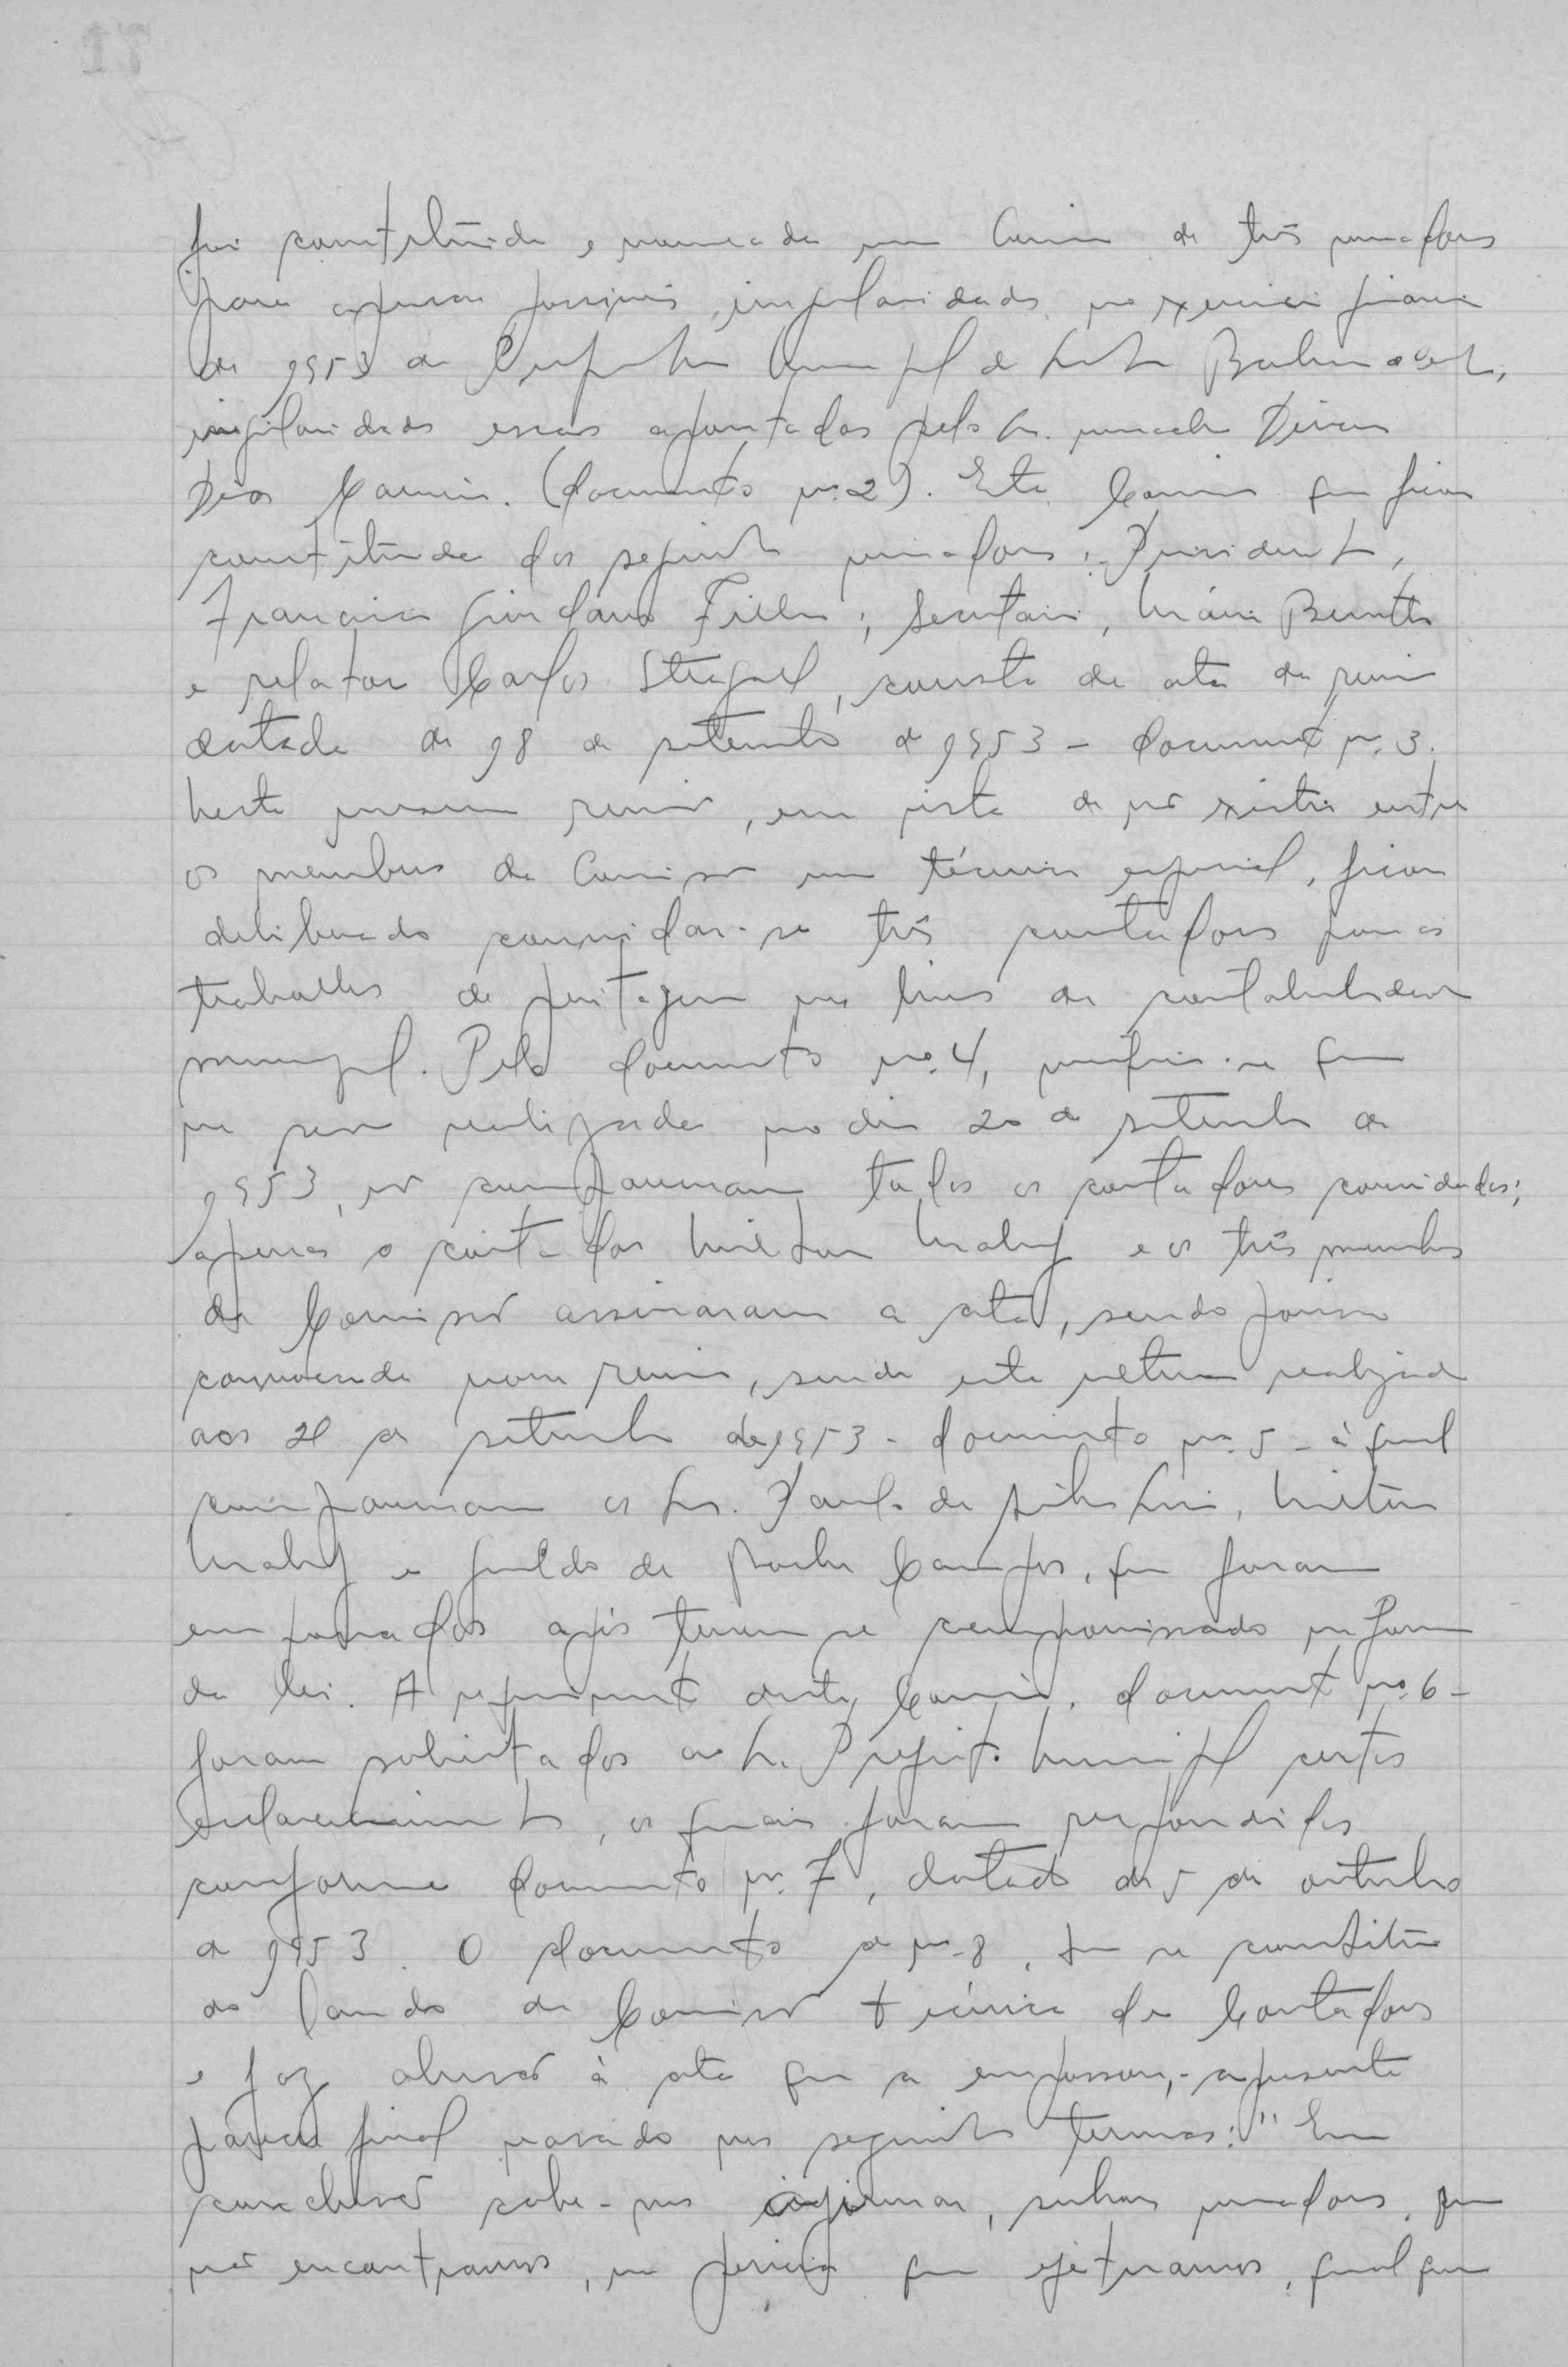 foi constituida e nomeada uma Comissão de três vereadores
para apurar possiveis irregularidades no exercicio financeiro
de 1953 da Prefeitura Municipal de Santa Barbara d'Oeste,
irregularidades essas apontadas pelo Sr. vereador
Dias Carneiro. (documento nº 2). Esta Comissão que ficou
constituida dos seguintes vereadores: Presidente,
Francisco Giordano Filho; Secretario, Mário
e relator Carlos Steagall, consta da ata da reunião
datada de 18 de setembro de 1953 - documento nº 3.
Nesta mesma reunião, em vista de não existir entre
os membros da Comissão um técnico especial, ficou
deliberado convidar-se três contadores para os
trabalhos de peritagem nos livros da contabilidade
municipal. Pelo documento nº 4, verifica-se que
na realizada no dia 20 de setembro de
1953, não compareceram todos os contadores convidados;
apenas o contador Milton e os três membros
da Comissão assinaram a ata, sendo por isso
convocada nova reunião, sendo esta ultima realizada
aos 21 de setembro de 1953 - documento nº 5 - à qual
compareceram os Srs. de Milton
e Geraldo da Rocha Campos, que foram
empossados após terem se compromissado na forma
da lei. A requerimento desta Comissão, documento nº 6 -
foram solicitados ao Sr. Prefeito Municipal certos
esclarecimentos, os quais foram respondidos
conforme documento nº 7, datado de 5 de outubro
de 1953. O documento de nº 8, que se constitui
do laudo da Comissão técnica de Contadores
e faz alusão à ata que a empossou, - apresenta
parecer final vasado nos seguintes termos: "Em
conclusão cabe-nos informar, senhores vereadores, que
não encontramos, na pericia que efetuamos, qualquer